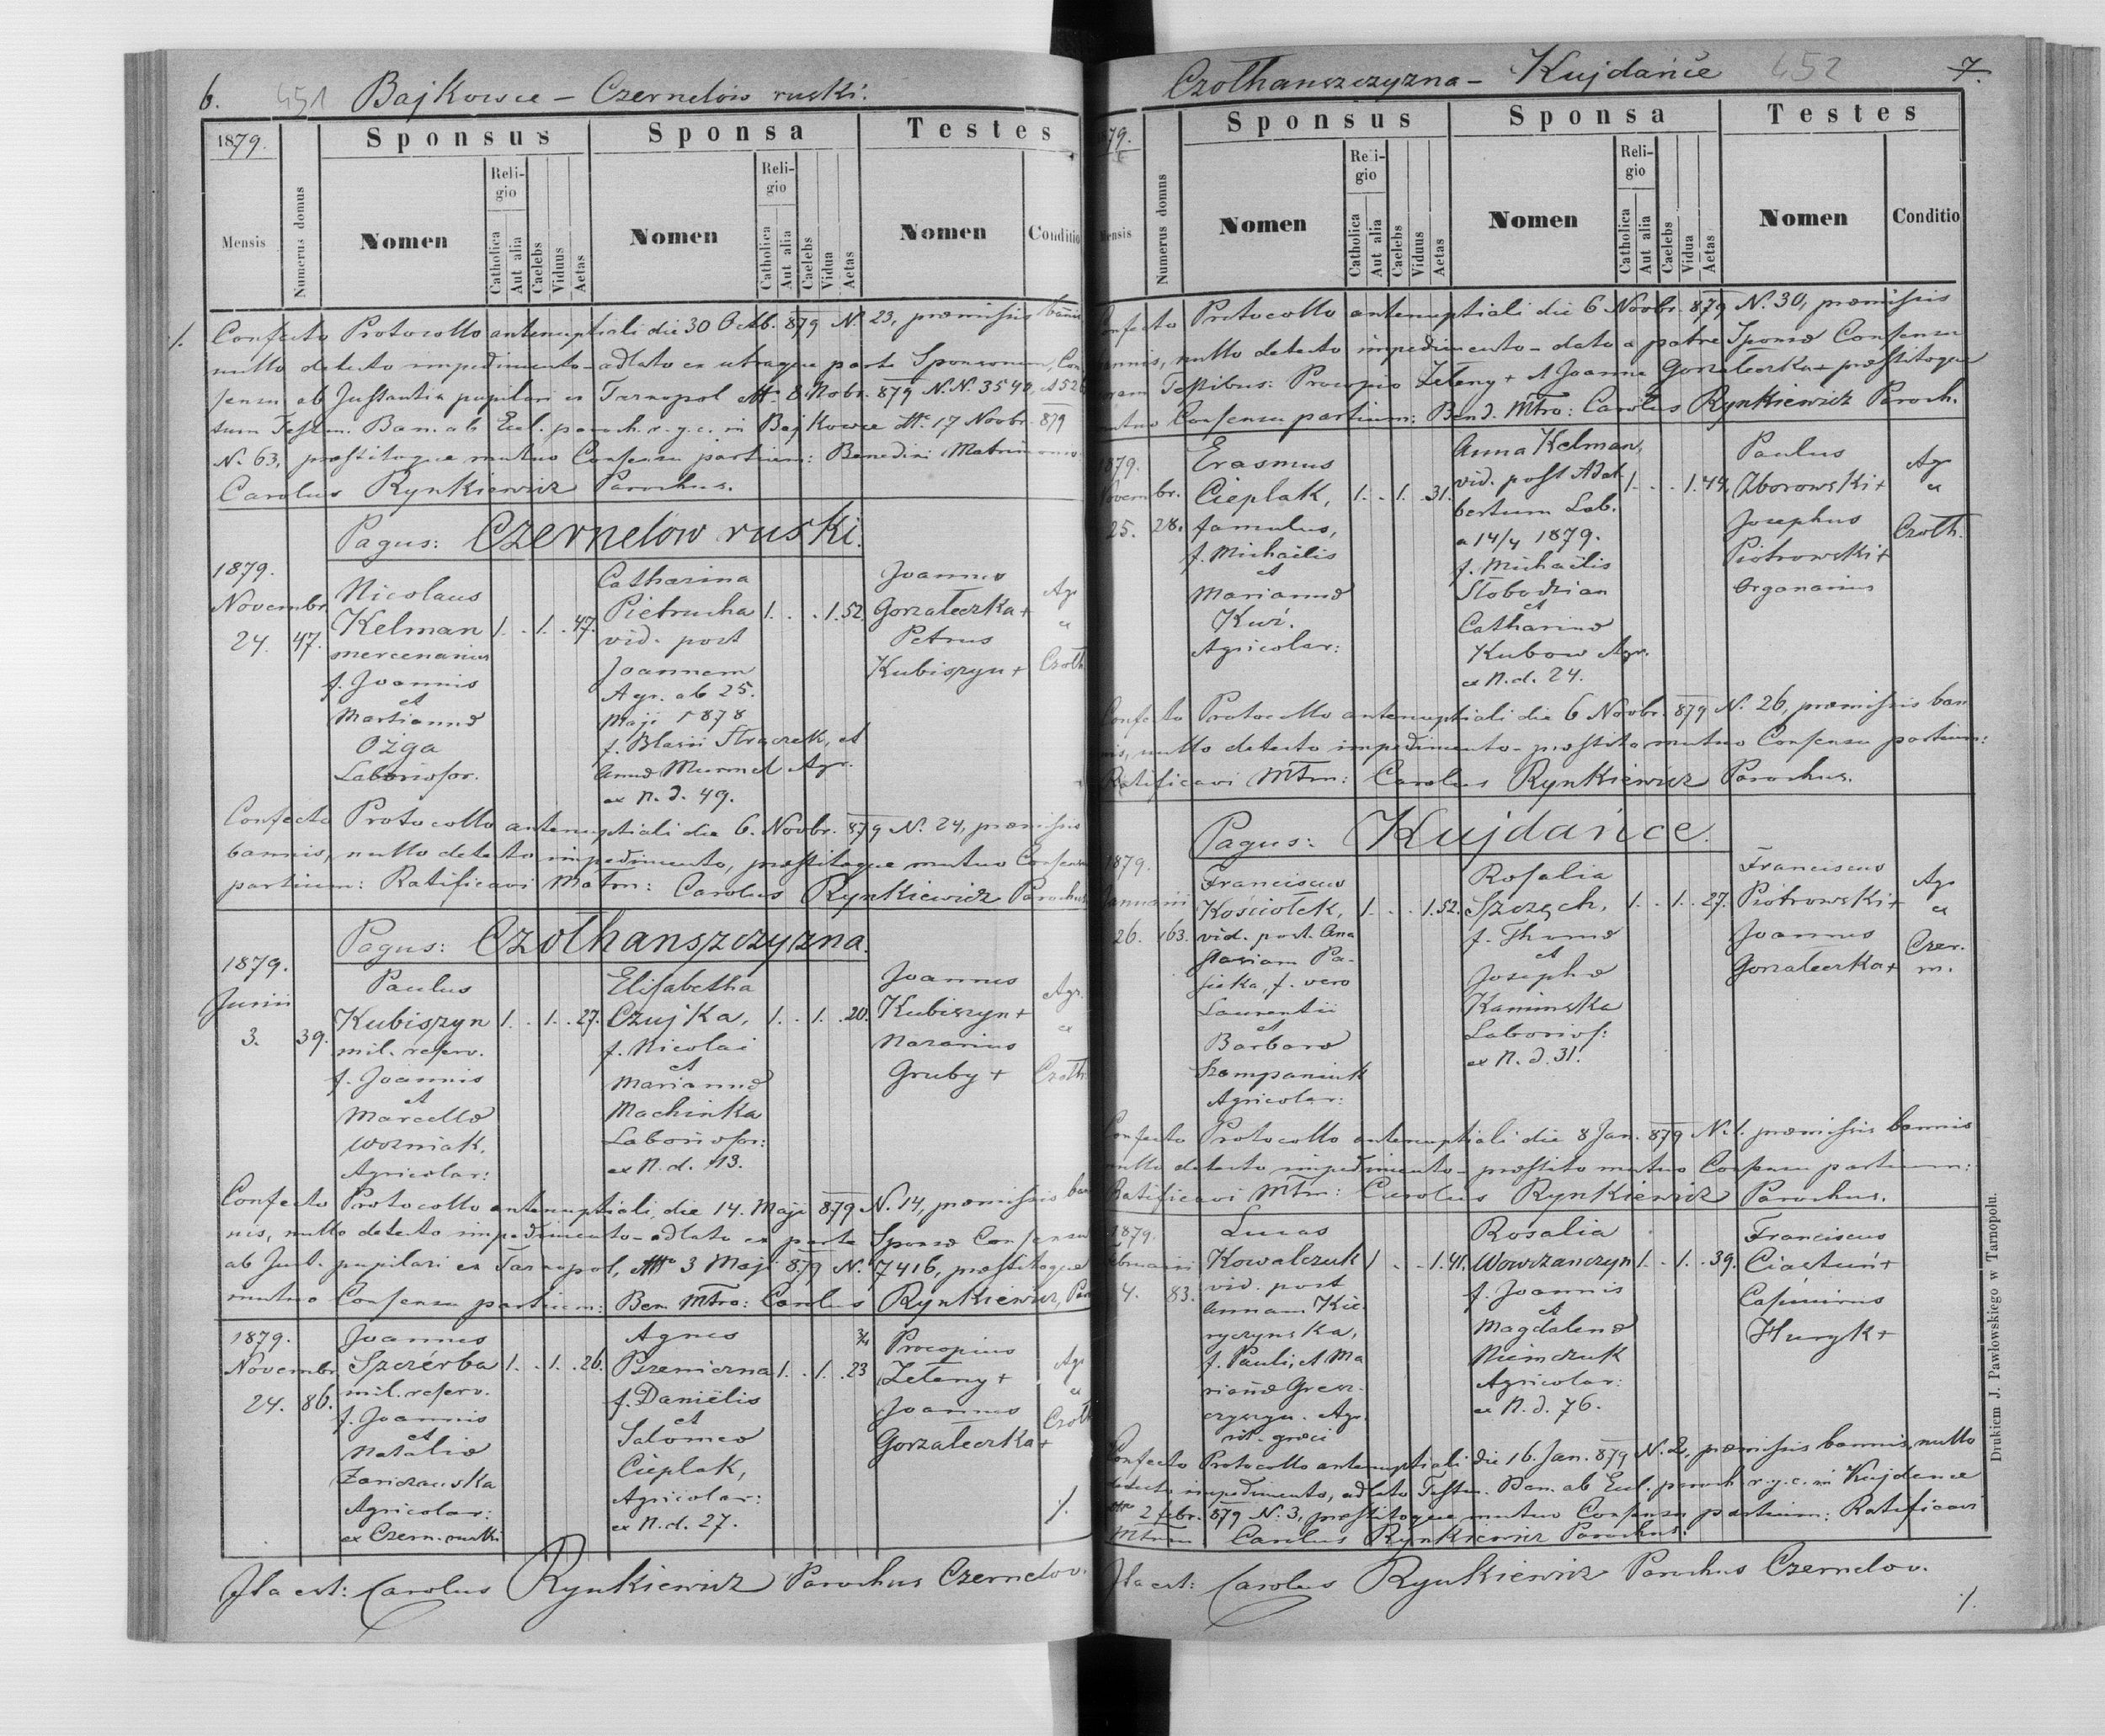 6. 451 Bajkowce – Czernelów ruski.
1879.
Sponsus Sponsa Testes
Mensis
Numerus domus
Nomen
Religio
Catholica
Aut alia
Caelebs
Viduus
Aetas
Nomen
Religio
Catholica
Aut alia
Caelebs
Vidua
Aetas
Nomen
Conditio
1. Confecto Protocollo antenuptiali die 30 Octb. 879 N. 23, præmissis
nullo detecto impedimento – adlato ex utraque parte Sponsorum, Con
sensu ab Instantia pupilari ex Tarnopol dtto 8 Nobr. 879 N.N. 3542,
tum Testm. Ban. ab Eccl. paroch. r. g. c. in Bajkowce dtto 17 Noobr. 879
N. 63, præstitoque mutuo Consensu partium: Benedixi Matrimonio
Carolus Rynkiewicz Parochus.
Pagus: Czernelów ruski.
1879.
Novembr.
24. 47.
Nicolaus
Kelman 1. . 1. . 47.
mercenarius
f. Joannis
et
Mariannæ
Ożga
Laboriosor.
Catharina
Pietrucha 1. . . 1. 52.
vid. post
Joannem
Agr. ab 25.
Maji 1878
f. Blasii Strączek, et
Annæ Murmel Agr.
ex N. d. 49.
Joannes
Gorzaleczka +
Petrus
Kubiszyn +
Agr
Czolh
Confecto Protocollo antenuptiali die 6. Noobr. 879 N. 24, præmissis
bannis, nullo detecto impedimento, præstitoque mutuo Consensu
partium: Ratificavi Matm: Carolus Rynkiewicz Parochus
Pagus: Czołhanszczyzna.
1879.
Junii
3. 39.
Paulus
Kubiszyn 1. . 1. . 27.
mil. reserv.
f. Joannis
et
Marcellæ
Wozniak,
Agricolar:
Elisabetha
Czujka, 1. . 1. . 20.
f. Nicolai
et
Mariannæ
Machinka
Laboriosor:
ex N. d. 113.
Joannes
Kubiszyn +
Nazarius
Gruby +
Agr.
Czolh.
Confecto Protocollo antenuptiali, die 14. Maji 879 N. 14, præmissis ban
nis, nullo detecto impedimento – adlato ex parte Sponsæ Consensu
ab Inst. pupilari ex Tarnopol, dtto 3 Maji 879 N. 7416, præstitoque
mutuo Consensu partium: Ben. Mtro: Carolus Rynkiewicz, Par
1879.
Novembr.
24. 86.
Joannes
Szczérba 1. . 1. . 26.
mil. reserv.
f. Joannis
et
Nataliæ
Agricolar:
ex Czern. ruski
Agnes
Przemiczna 1. . 1. . 23 3/4
f. Daniëlis
et
Salomeæ
Cieplak,
Agricolar:
ex N. d. 27.
Procopius
Zełeny +
Joannes
Gorzaleczka +
Agr
Czolh
Ita est: Carolus Rynkiewicz Parochus Czernelov.
Czołhanszczyzna – Kujdańce 452 7.
Sponsus Sponsa Testes
Mensis
Numerus domus
Nomen
Religio
Catholica
Aut alia
Caelebs
Viduus
Aetas
Nomen
Religio
Catholica
Aut alia
Caelebs
Vidua
Aetas
Nomen
Conditio
Confecto Protocollo antenuptiali die 6 Noobr. 879 N. 30, præmissis
bannis, nullo detecto impedimento – dato a patre Sponsæ Consensu
coram Testibus: Procopio Zełeny + et Joanne Gorzaleczka + præstitoque
mutuo Consensu partium: Bend. Mtro: Carolus Rynkiewicz Paroch.
1879.
Novembr.
25. 28.
Erasmus
Cieplak, 1. . 1. . 31.
famulus,
f. Michaëlis
et
Mariannæ
Agricolar:
Anna Kelman,
vid. post Adal 1. . . 1. 44.
bertum Lab.
a 14/4 1879.
f. Michaëlis
Słobodzian
et
Catharinæ
Kubow Agr.
ex N. d. 24.
Paulus
Zborowski +
Josephus
Piotrowski +
Organarius
Agr
Czolh.
Confecto Protocollo antenuptiali die 6 Noobr. 879 N. 26, præmissis ban
nis, nullo detecto impedimento – præstito mutuo Consensu partium:
Ratificavi Mtm: Carolus Rynkiewicz Parochus.
Pagus: Kujdańce.
1879.
Januarii
26. 163.
Franciscus
Kościołek, 1. . . 1. 52.
vid. post Ana
stasiam Pa-
sieka, f. vero
Laurentii
et
Barbaræ
Szompaniuk
Agricolar:
Rosalia
Szczęch, 1. . 1. . 27.
f. Thomæ
et
Josephæ
Kaminska
Laborios:
ex N. d. 31.
Franciscus
Piotrowski +
Joannes
Gorzaleczka +
Agr
Czer.
m.
Confecto Protocollo antenuptiali die 8 Jan. 879 N. 1. præmissis bannis
nullo detecto impedimento – præstito mutuo Consensu partium:
Ratificavi Mtm: Carolus Rynkiewicz Parochus.
1879.
Februarii
4. 83.
Lucas
Kowalczuk 1 . . 1. 41.
vid. post
Annam Kie
ryczynska,
f. Pauli, et Ma
riañæ
Agr.
rit. græci
Rosalia
Wowszanczyn 1. . 1. . 39.
f. Joannis
et
Magdalenæ
Niemczuk
Agricolar:
ex N. d. 76.
Franciscus
Ciastuń +
Casimirus
Huryk +
Confecto Protocollo antenuptiali die 16. Jan. 879 N. 2, præmissis bannis, nullo
detecto impedimento, adlato Testm. Ban. ab Eccl. paroch r. g. c. in Kujdance
dtto 2 febr. 879 N. 3, præstitoque mutuo Consensu partium: Ratificavi
Mtm. Carolus Rynkiewicz Parochus.
Ita est: Carolus Rynkiewicz Parochus Czernelov.
Drukiem J. Pawłowskiego w Tarnopolu.